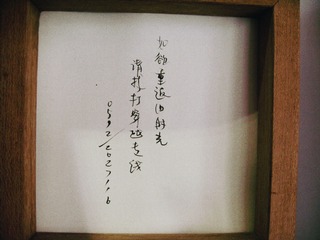 如欲重返旧时光
请拨打穿越专线
0592/2027116